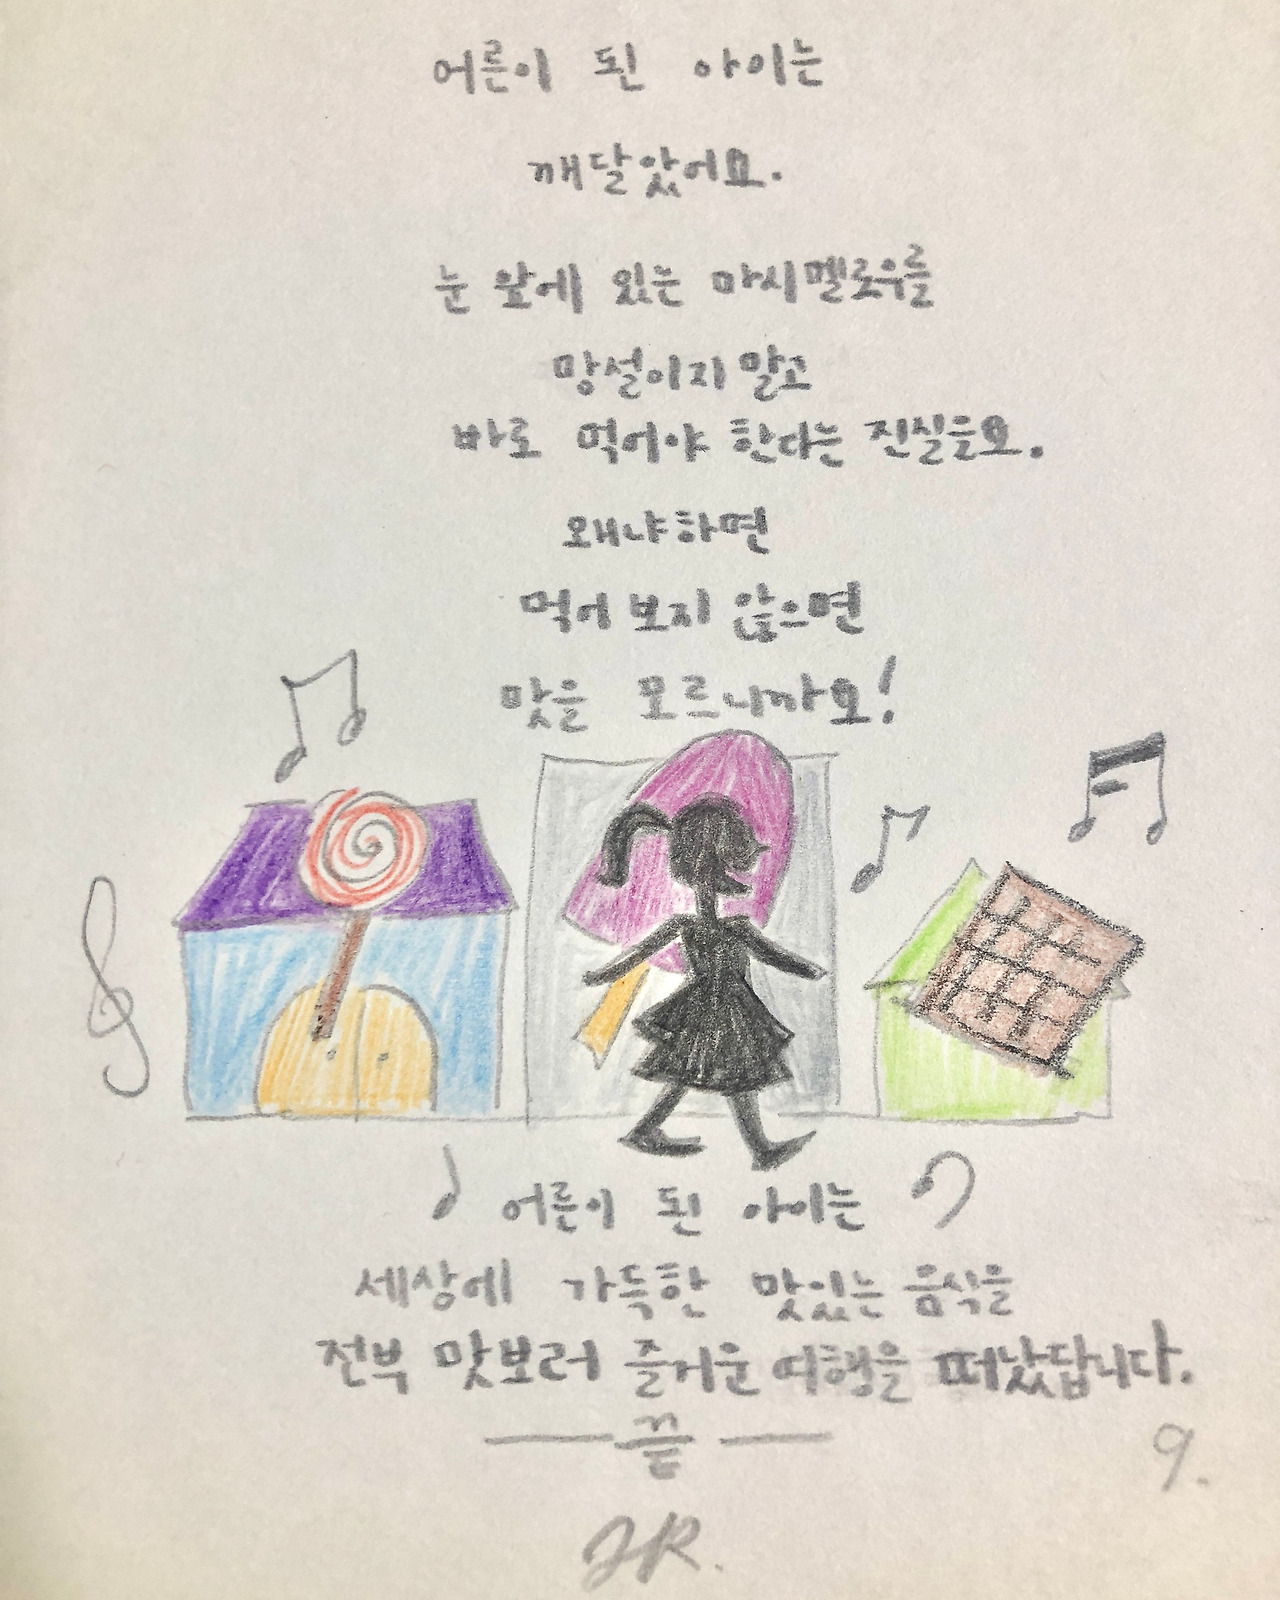 어른이 된 아이는
깨달았어요.
눈 앞에 있는 마시멜로우를
망설이지 말고
바로 먹어야 한다는 진실을요.
왜냐하면
먹어 보지 않으면
맛을 모르니까요!
어른이 된 아이는
세상에 가득한 맛있는 음식을
전부 맛보러 즐거운 여행을 떠났답니다.
끝
9.
JR.